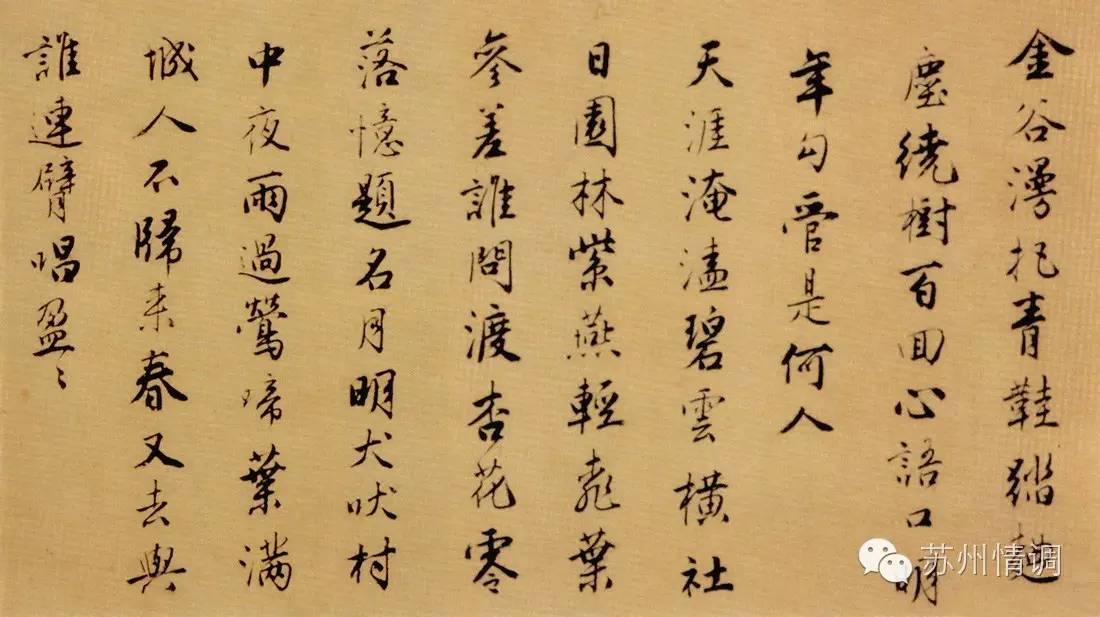 金谷漫把青鞋踏麯
塵繞樹百回心語口明
年勾管是何人
天涯淹溘碧雲橫社
日園林紫燕輕桃葉
參差誰問渡杏花零
落憶題名月明犬吠村
中夜雨過鶯啼葉滿
城人不歸来春又去與
誰連臂唱盈〻
苏州情调